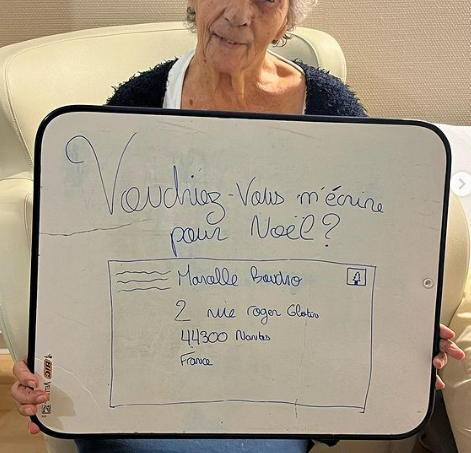 Voudriez-Vous m'écrire
pour Noël?
Marcelle Baudro
2 rue roger Glotin
44300 Nantes
France
BIC VELLEDA